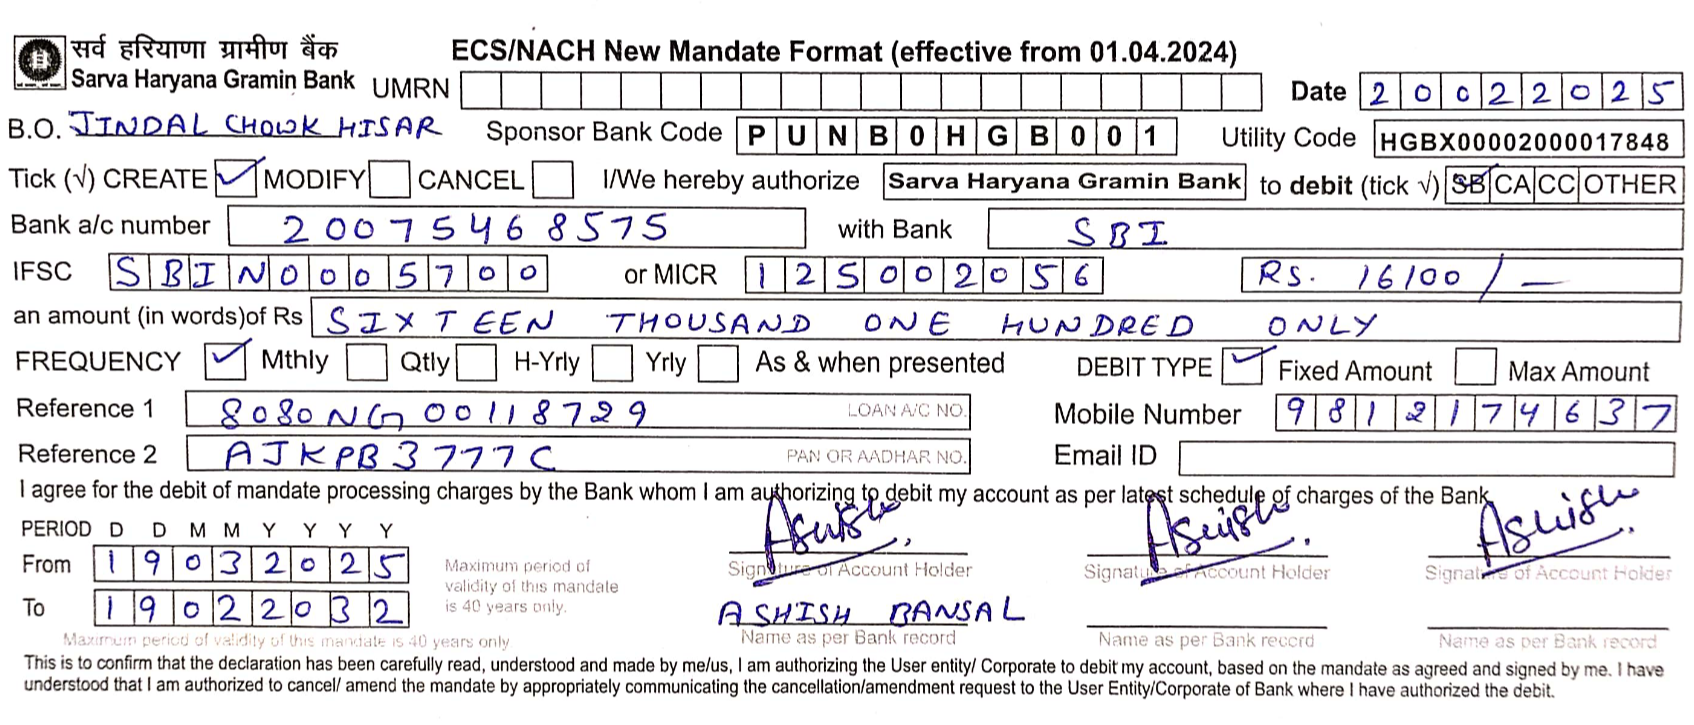 सर्व हरियाणा ग्रामीण बैंक
Sarva Haryana Gramin Bank
ECS/NACH New Mandate Format (effective from 01.04.2024)
UMRN Date 20022025
B.O. JINDAL CHOWK HISAR Sponsor Bank Code PUNB0HGB001 Utility Code HGBX00002000017848
Tick (√) CREATE ✓ MODIFY CANCEL I/We hereby authorize Sarva Haryana Gramin Bank to debit (tick √) SB CA CC OTHER
Bank a/c number 20075468575 with Bank SBI
IFSC SBIN0005700 or MICR 125002056 RS. 16100/—
an amount (in words)of Rs SIXTEEN THOUSAND ONE HUNDRED ONLY
FREQUENCY ✓ Mthly Qtly H-Yrly Yrly As & when presented DEBIT TYPE ✓ Fixed Amount Max Amount
Reference 1 8080NG00118729 LOAN A/C NO. Mobile Number 9812174637
Reference 2 AJKPB3777C PAN OR AADHAR NO. Email ID
I agree for the debit of mandate processing charges by the Bank whom I am authorizing to debit my account as per latest schedule of charges of the Bank
PERIOD D D M M Y Y Y Y
Ashish Ashish Ashish
From 19032025 Maximum period of validity of this mandate is 40 years only. Signature of Account Holder Signature of Account Holder Signature of Account Holder
To 19022032 ASHISH BANSAL
Maximum period of validity of this mandate is 40 years only Name as per Bank record Name as per Bank record Name as per Bank record
This is to confirm that the declaration has been carefully read, understood and made by me/us, I am authorizing the User entity/ Corporate to debit my account, based on the mandate as agreed and signed by me. I have
understood that I am authorized to cancel/ amend the mandate by appropriately communicating the cancellation/amendment request to the User Entity/Corporate of Bank where I have authorized the debit.